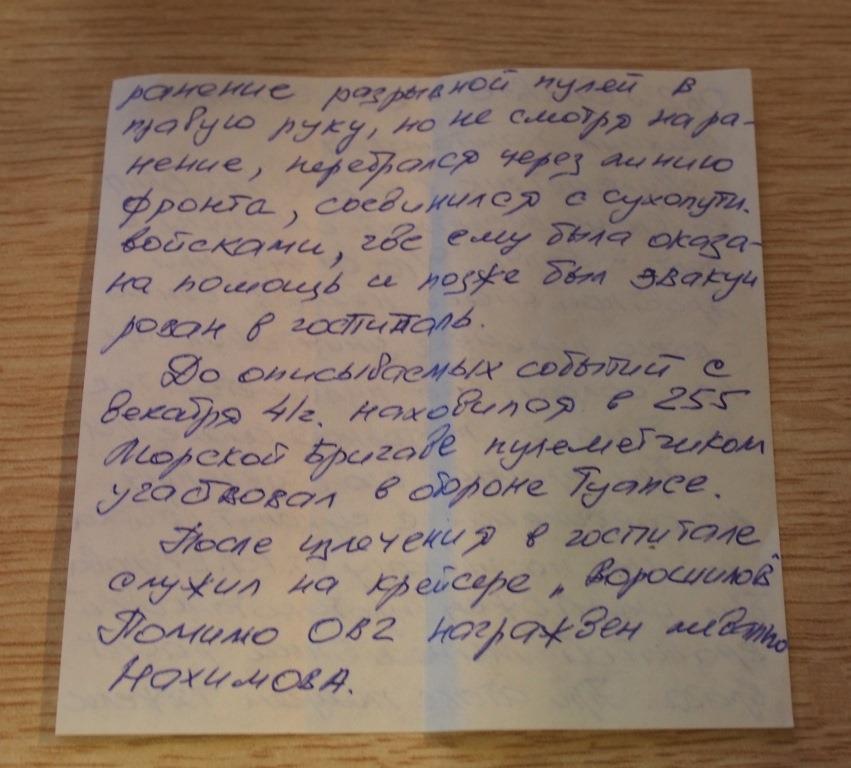 ранение разрывной пулей в
правую руку, но не смотря на ра-
нение, перебрался через линию
фронта, соединился с сухопутн.
войсками, где ему была оказа-
на помощь и позже был эвакуи
рован в госпиталь.
До описываемых событий с
декабря 41г. находился в 255
Морской Бригаде пулеметчиком
участвовал в обороне Туапсе.
После излечения в госпитале
служил на крейсере „Ворошилов"
Помимо ОВ2 награжден медалью
Нахимова.